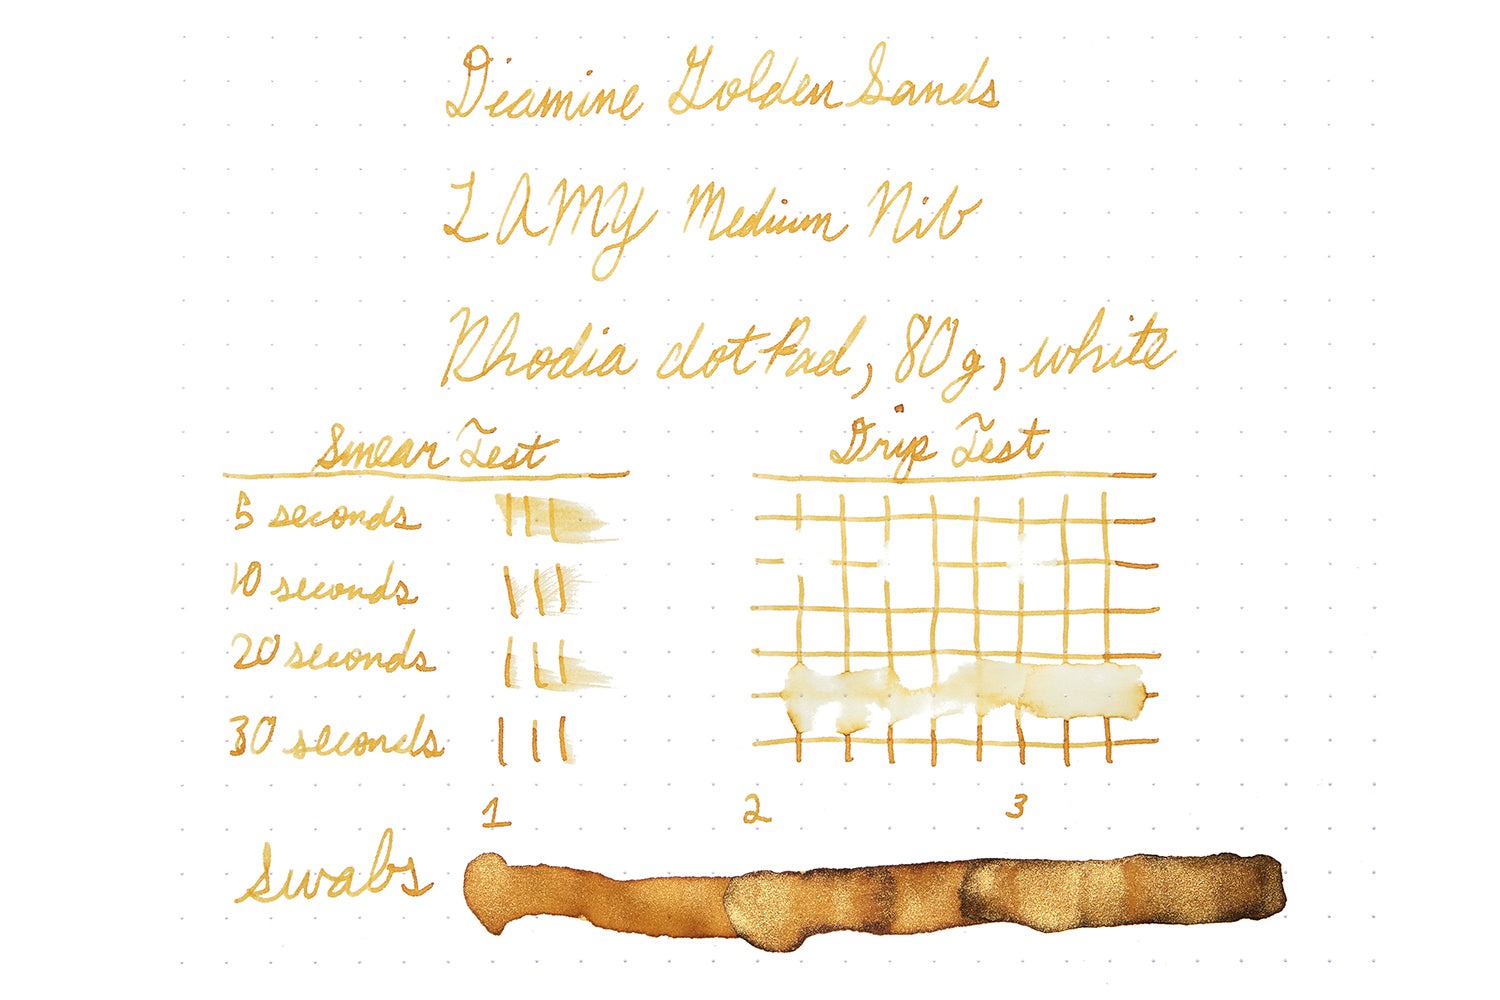 Diamine Golden Sands
LAMY Medium Nib
Rhodia dotPad, 80g, white
Smear Test
Drip Test
5 seconds
10 seconds
20 seconds
30 seconds
1 2 3
Swabs